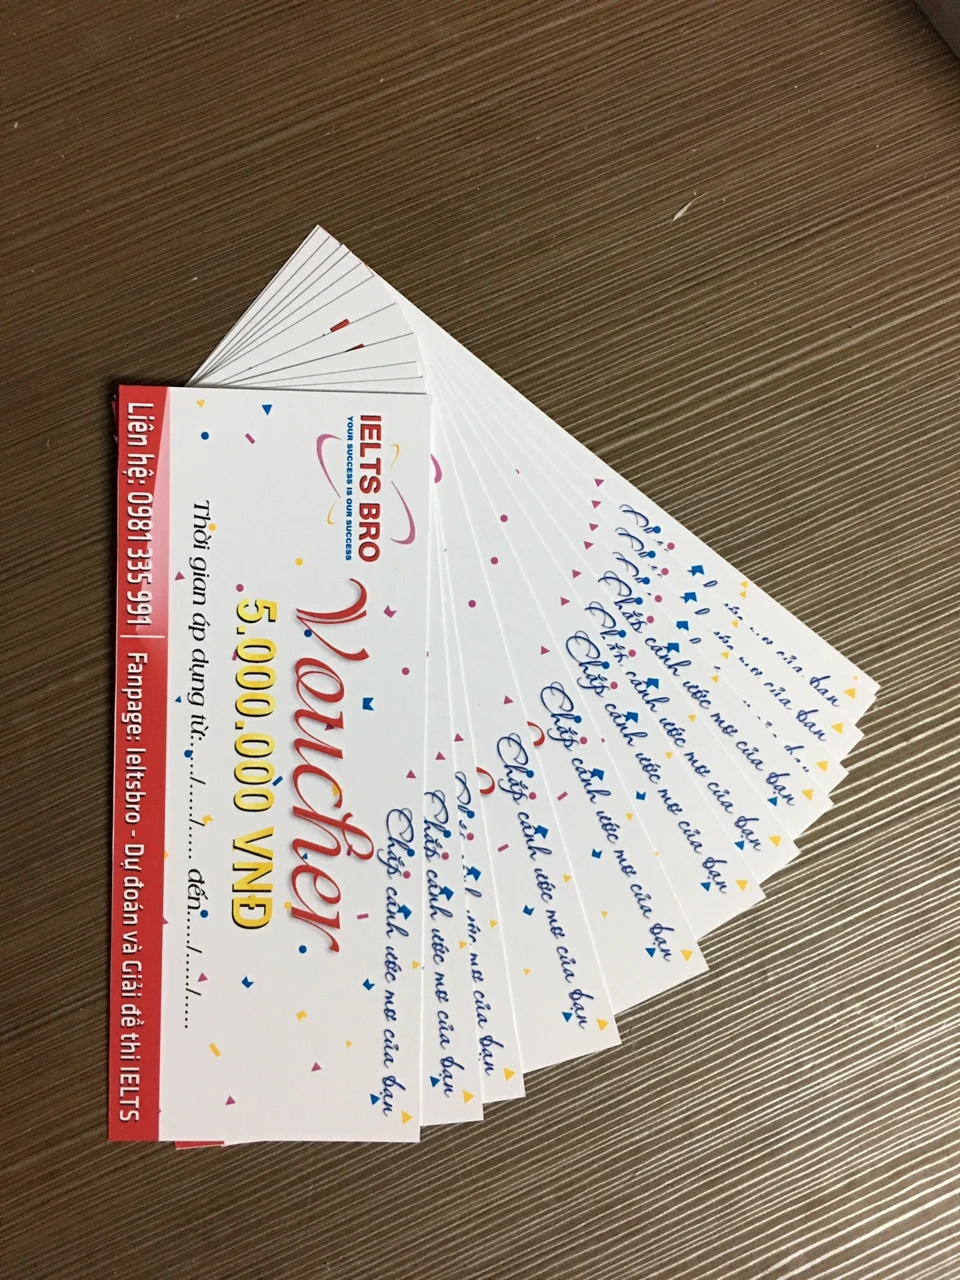 IELTS BRO
YOUR SUCCESS IS OUR SUCCESS
Chắp cánh ước mơ của bạn
Voucher
5.000.000 VNĐ
Thời gian áp dụng từ:..../....../...... đến...../....../......
Liên hệ: 0981 335 991 | Fanpage: Ieltsbro - Dự đoán và Giải đề thi IELTS
Chắp cánh ước mơ của bạn
ước mơ của bạn
Chắp cánh ước mơ của bạn
Chắp cánh ước mơ của bạn
Chắp cánh ước mơ của bạn
Chắp cánh ước mơ của bạn
Chắp cánh ước mơ của bạn
của bạn
của bạn